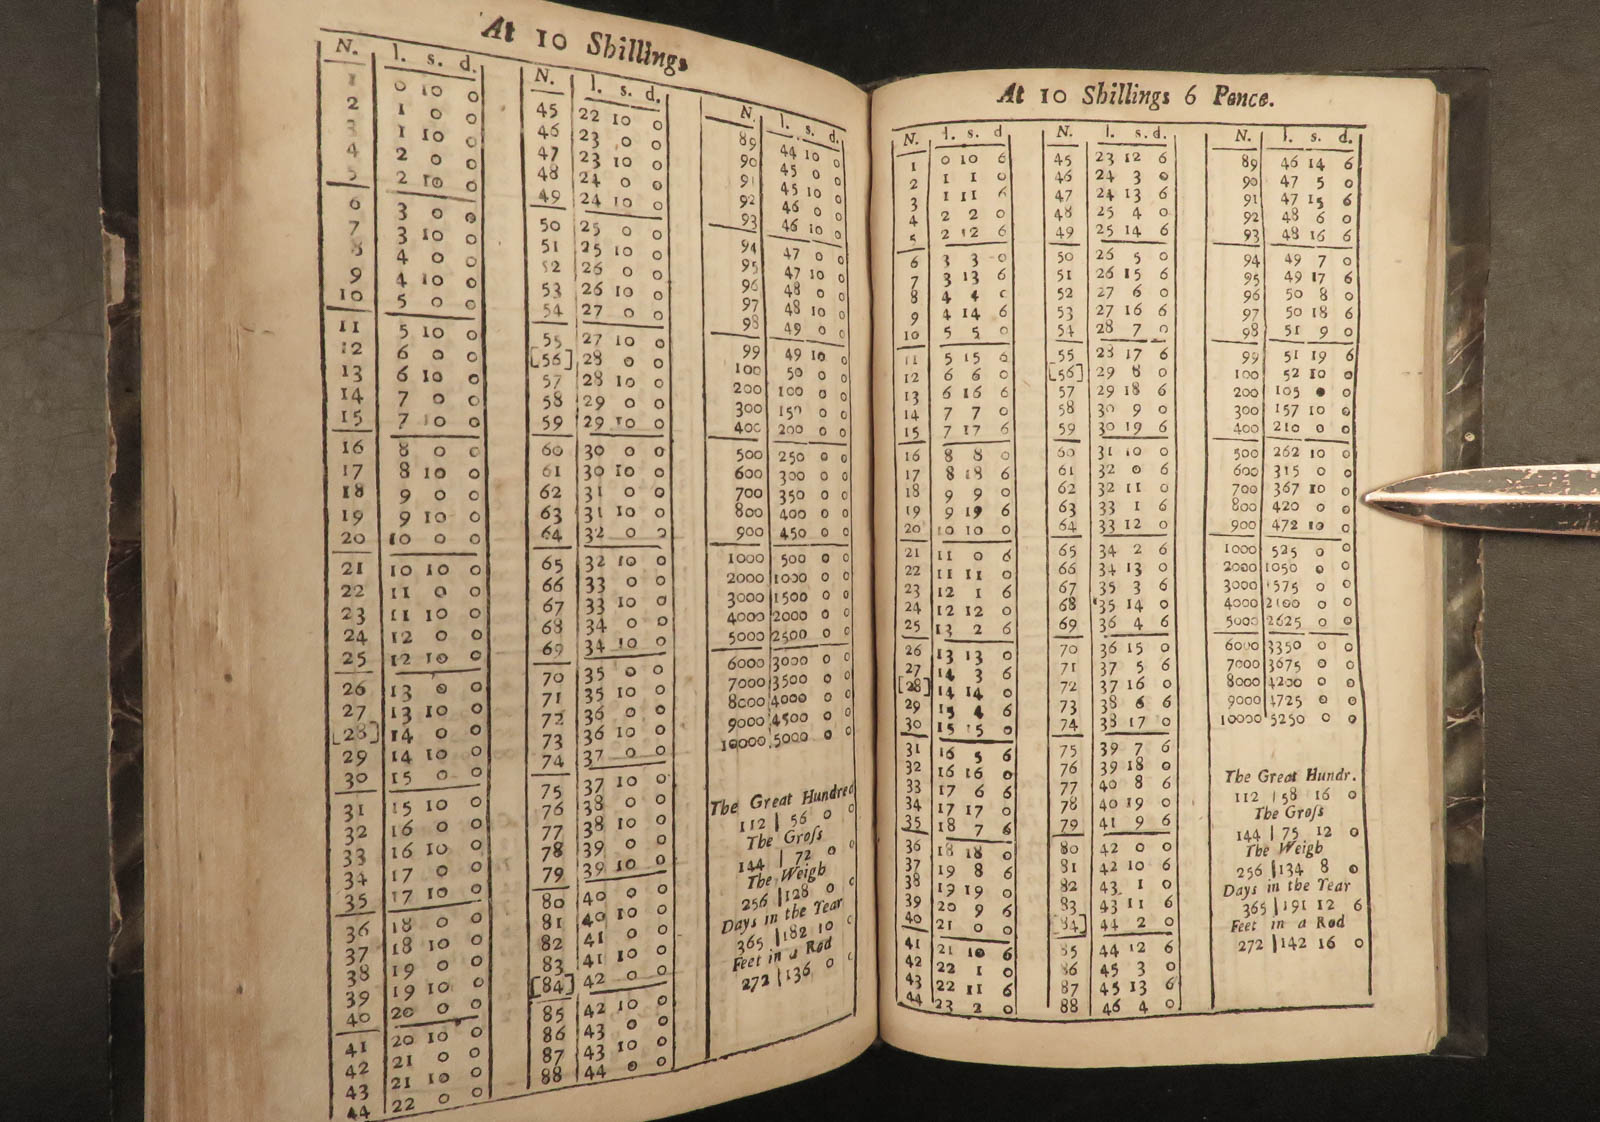 At 10 Shillings
N. l. s. d.
1 0 10 0
2 1 0 0
3 1 10 0
4 2 0 0
5 2 10 0
6 3 0 0
7 3 10 0
8 4 0 0
9 4 10 0
10 5 0 0
11 5 10 0
12 6 0 0
13 6 10 0
14 7 0 0
15 7 10 0
16 8 0 0
17 8 10 0
18 9 0 0
19 9 10 0
20 10 0 0
21 10 10 0
22 11 0 0
23 11 10 0
24 12 0 0
25 12 10 0
26 13 0 0
27 13 10 0
[28] 14 0 0
29 14 10 0
30 15 0 0
31 15 10 0
32 16 0 0
33 16 10 0
34 17 0 0
35 17 10 0
36 18 0 0
37 18 10 0
38 19 0 0
39 19 10 0
40 20 0 0
41 20 10 0
42 21 0 0
43 21 10 0
44 22 0 0
N. l. s. d.
45 22 10 0
46 23 0 0
47 23 10 0
48 24 0 0
49 24 10 0
50 25 0 0
51 25 10 0
52 26 0 0
53 26 10 0
54 27 0 0
55 27 10 0
[56] 28 0 0
57 28 10 0
58 29 0 0
59 29 10 0
60 30 0 0
61 30 10 0
62 31 0 0
63 31 10 0
64 32 0 0
65 32 10 0
66 33 0 0
67 33 10 0
68 34 0 0
69 34 10 0
70 35 0 0
71 35 10 0
72 36 0 0
73 36 10 0
74 37 0 0
75 37 10 0
76 38 0 0
77 38 10 0
78 39 0 0
79 39 10 0
80 40 0 0
81 40 10 0
82 41 0 0
83 41 10 0
[84] 42 0 0
85 42 10 0
86 43 0 0
87 43 10 0
88 44 0 0
N. l. s. d.
89 44 10 0
90 45 0 0
91 45 10 0
92 46 0 0
93 46 10 0
94 47 0 0
95 47 10 0
96 48 0 0
97 48 10 0
98 49 0 0
99 49 10 0
100 50 0 0
200 100 0 0
300 150 0 0
400 200 0 0
500 250 0 0
600 300 0 0
700 350 0 0
800 400 0 0
900 450 0 0
1000 500 0 0
2000 1000 0 0
3000 1500 0 0
4000 2000 0 0
5000 2500 0 0
6000 3000 0 0
7000 3500 0 0
8000 4000 0 0
9000 4500 0 0
10000 5000 0 0
The Great Hundred
112 | 56 0 0
The Groſs
144 | 72 0 0
The Weigh
256 | 128 0 0
Days in the Year
365 | 182 10 0
Feet in a Rod
272 | 136 0 0
At 10 Shillings 6 Pence.
N. l. s. d
1 0 10 6
2 1 1 0
3 1 11 6
4 2 2 0
5 2 12 6
6 3 3 0
7 3 13 6
8 4 4 0
9 4 14 6
10 5 5 0
11 5 15 6
12 6 6 0
13 6 16 6
14 7 7 0
15 7 17 6
16 8 8 0
17 8 18 6
18 9 9 0
19 9 19 6
20 10 10 0
21 11 0 6
22 11 11 0
23 12 1 6
24 12 12 0
25 13 2 6
26 13 13 0
27 14 3 6
[28] 14 14 0
29 15 4 6
30 15 15 0
31 16 5 6
32 16 16 0
33 17 6 6
34 17 17 0
35 18 7 6
36 18 18 0
37 19 8 6
38 19 19 0
39 20 9 6
40 21 0 0
41 21 10 6
42 22 1 0
43 22 11 6
44 23 2 0
N. l. s. d.
45 23 12 6
46 24 3 0
47 24 13 6
48 25 4 0
49 25 14 6
50 26 5 0
51 26 15 6
52 27 6 0
53 27 16 6
54 28 7 0
55 28 17 6
[56] 29 8 0
57 29 18 6
58 30 9 0
59 30 19 6
60 31 10 0
61 32 0 6
62 32 11 0
63 33 1 6
64 33 12 0
65 34 2 6
66 34 13 0
67 35 3 6
68 35 14 0
69 36 4 6
70 36 15 0
71 37 5 6
72 37 16 0
73 38 6 6
74 38 17 0
75 39 7 6
76 39 18 0
77 40 8 6
78 40 19 0
79 41 9 6
80 42 0 0
81 42 10 6
82 43 1 0
83 43 11 6
[84] 44 2 0
85 44 12 6
86 45 3 0
87 45 13 6
88 46 4 0
N. l. s. d.
89 46 14 6
90 47 5 0
91 47 15 6
92 48 6 0
93 48 16 6
94 49 7 0
95 49 17 6
96 50 8 0
97 50 18 6
98 51 9 0
99 51 19 6
100 52 10 0
200 105 0 0
300 157 10 0
400 210 0 0
500 262 10 0
600 315 0 0
700 367 10 0
800 420 0 0
900 472 10 0
1000 525 0 0
2000 1050 0 0
3000 1575 0 0
4000 2100 0 0
5000 2625 0 0
6000 3350 0 0
7000 3675 0 0
8000 4200 0 0
9000 4725 0 0
10000 5250 0 0
The Great Hundr.
112 | 58 16 0
The Groſs
144 | 75 12 0
The Weigh
256 | 134 8 0
Days in the Year
365 | 191 12 6
Feet in a Rod
272 | 142 16 0